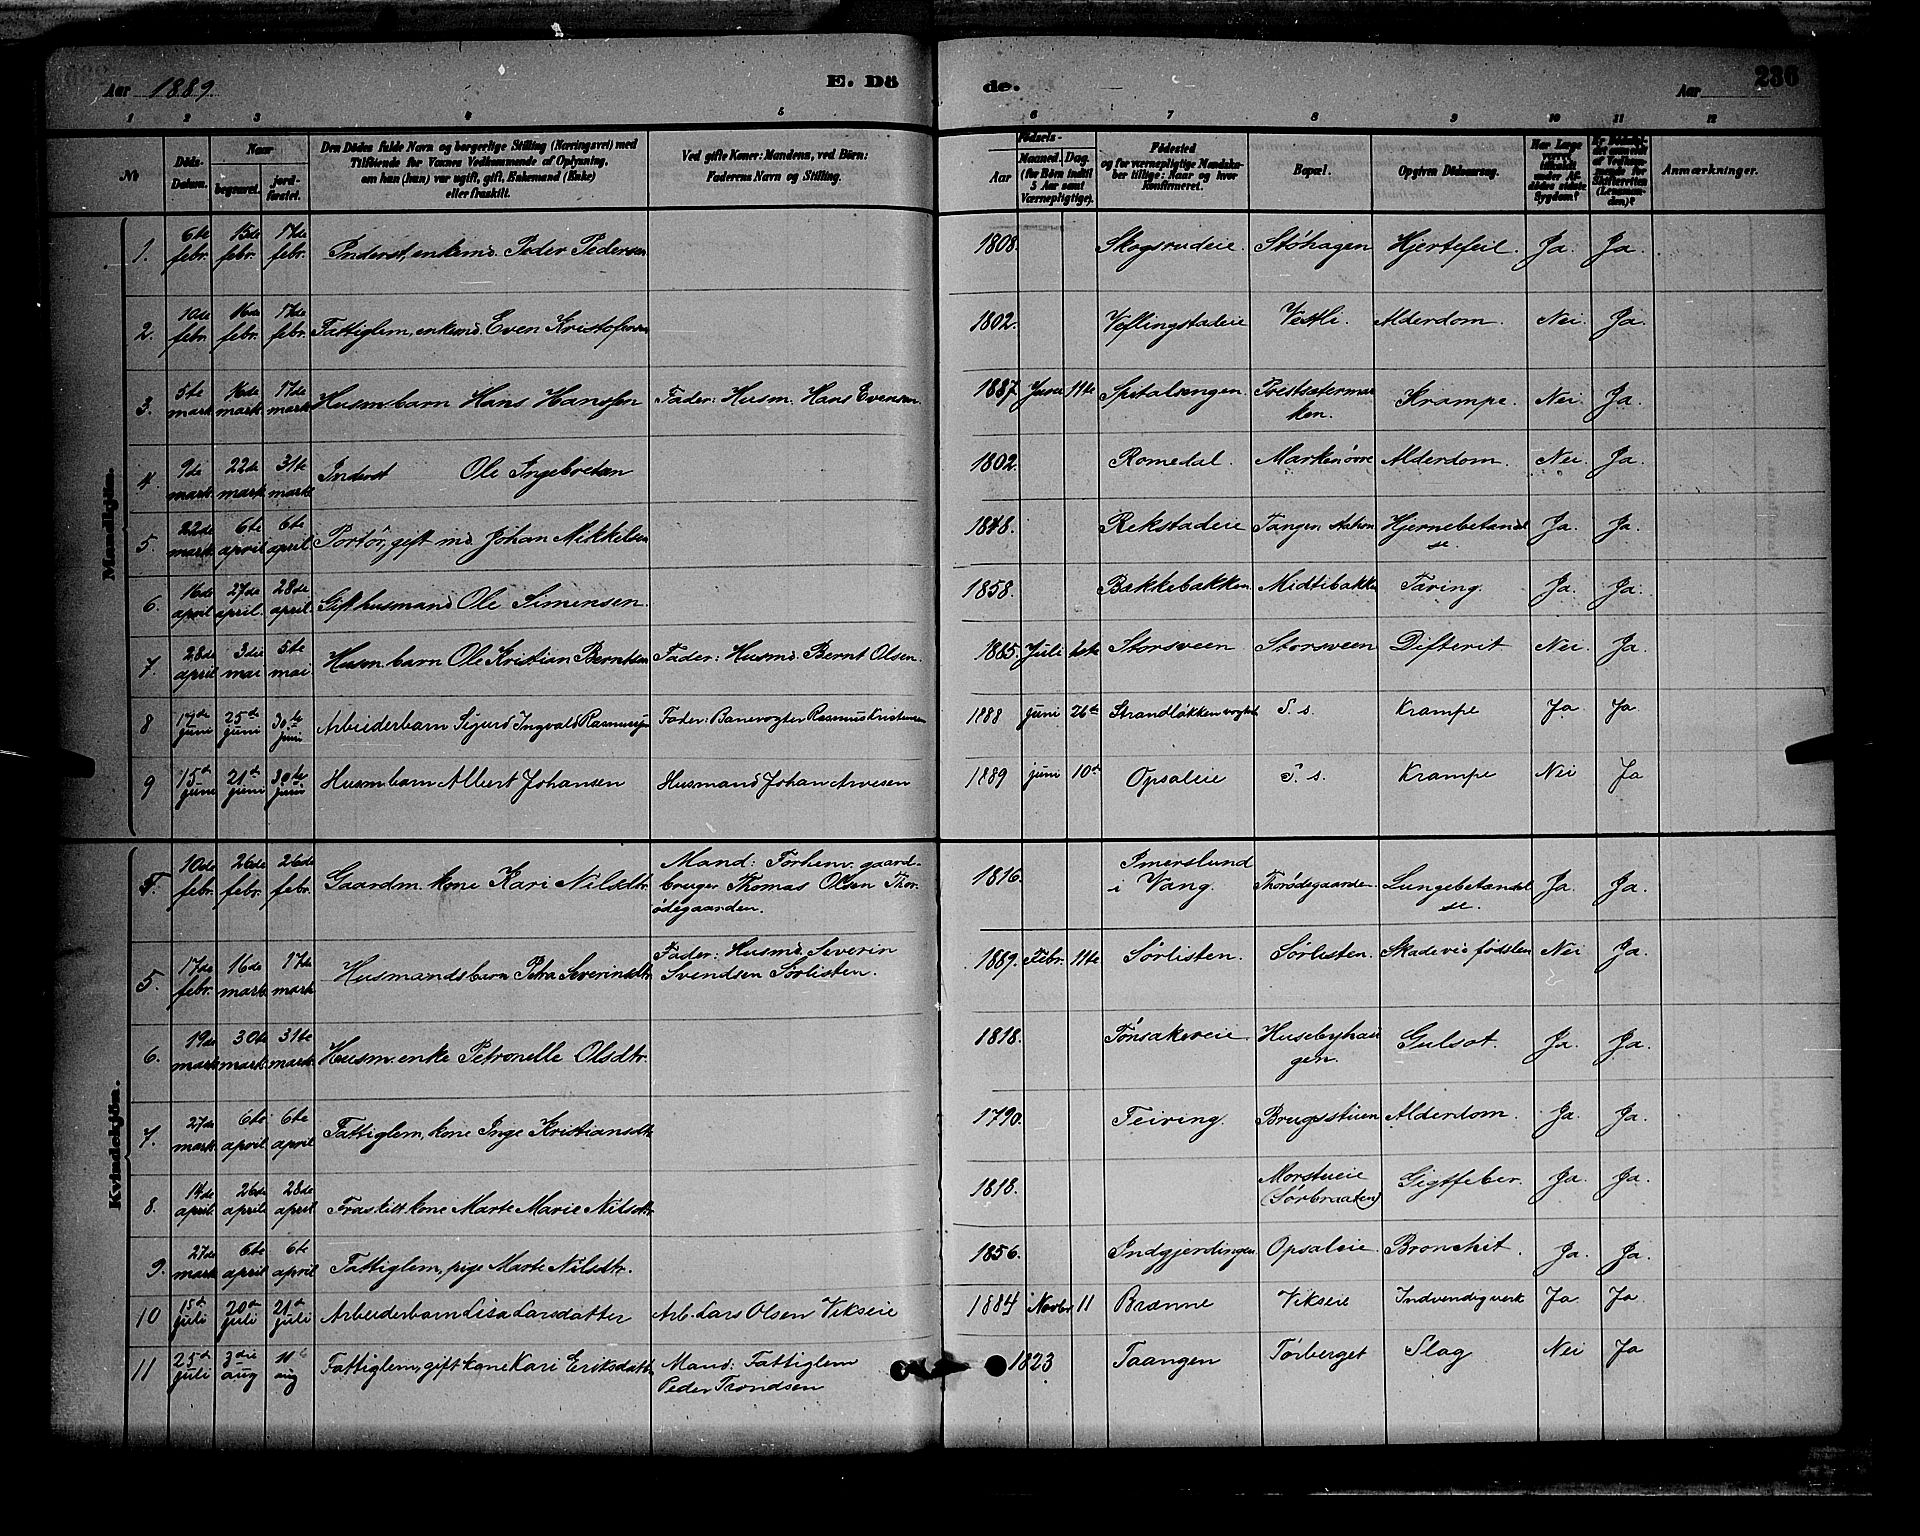 Aar 1889. E. Dö
de. Aar 236
1 2 3 4 5 6 7 8 9 10 11 12
№ Döds-Datum. Naar begravet. jord-fæstet. Den Dödes fulde Navn og borgerlige Stilling (Næringsvei) med Tilföiende for Voxnes Vedkommende af Oplysning, om han (hun) var ugift, gift, Enkemand (Enke) eller fraskilt. Ved gifte Koner: Mandens, ved Börn: Faderens Navn og Stilling. Födsels- Aar Maaned. Dag. (for Börn indtil 5 Aar samt Værnepligtige). Födested og for værnepligtige Mandska-ber tillige: Naar og hvor konfirmeret. Bopæl. Opgiven Dödsaarsag. Har Læge været tilkaldt under Af-dödes sidste Sygdom? Er Dödsfal-det anmeldt af Vedkom-mende for Skifteretten (Lensman-den)? Anmærkninger.
Mandkjön.
1. 6te febr. 15de febr. 17de febr. Inderst, enkemd. Peder Pedersen 1808. Skogsrudeie. Støhagen Hjertefeil. Ja. Ja.
2. 10de febr. 16de febr. 17de febr. Fattiglem, enkemd. Even Kristofersen 1802. Veflingstadeie Vestli. Alderdom. Nei. Ja.
3. 5te mark 16de mark 17de mark Husm.barn Hans Hansen Fader: Husm. Hans Evensen. 1887. 11te Spitalsengen Prestsætermarken. Krampe. Nei. Ja.
4. 9de mark. 22de mark 31te mark Inderst Ole Ingebretsen 1802. Romedal. Alderdom. Nei. Ja.
5. 22de mark 6te april 6te april Portör, gift md. Johan Mikkelsen 1848. Rekstadeie Tangen station Hjernebetændelse. Ja. Ja.
6. 16de april 27de april. 28de april. Gift husmand Ole Simensen. 1858. Bakkebakken Midtibakken Tæring. Ja. Ja.
7. 28de april 3die mai 5te mai Husm.barn Ole Kristian Berntsen Fader: Husmd. Bernt Olsen. 1885. Juli Storsveen Storsveen Difterit Nei. Ja.
8 17de juni 25de juni 30te juni Arbeiderbarn Sigurd Ingvald Rasmussen Fader: Banevogter Rasmus Kristensen 1888 juni 26de S. s. Krampe Ja Ja
9 15de juni 21de juni 30te juni Husm.barn Albert Johansen Husmand Johan Arvesen 1889 juni 10de Opsaleie S. s. Krampe Nei Ja
Kvindekjön.
10de febr. 26de febr. 26de febr. Gaardm. kone Kari Nilsdtr. Mand: Forhenv. gaard-bruger Thomas Olsen Thorødegaarden. 1816. Imerslund i Vang. Thorødegaarden. Lungebetændelse. Ja. Ja.
5. 17de febr. 16de mark 17de mark Husmandsbarn Petra Severinsdtr. Fader: Husmd. Severin Svendsen Sørlisten. 1889. Febr. 11te Sørlisten. Sørlisten. Skade ved fødselen Nei Ja.
6. 19de mark 30te mark. 31te mark. Husm.enke Petronelle Olsdtr. 1818. Tønsakereie. Husebyhaugen. Gulsot. Ja. Ja.
7. 27de mark. 6te april 6te april Fattiglem, kone Inge Kristiansdtr. 1790. Feiring. Brugsstuen Alderdom. Ja. Ja.
8. 14de april. 26de april 28de april Fraskilt kone Marte Marie Nilsdtr. 1818. Morstueie (Sørbraaten) Gigtfeber. Ja. Ja.
9. 27de mark 6te april 6te april Fattiglem, pige Marte Nilsdtr. 1856. Indgjerdingen Opsaleie. Bronchit. Ja. Ja.
10 15de juli 20de juli 21de juli Arbeiderbarn Lisa Larsdatter Arb. Lars Olsen Vikseie 1884 Novbr 11 Brænne Vikseie Indvendig verk Ja Ja
11 25de juli 3die aug 11te aug Fattiglem, gift kone Kari Eriksdatter Mand: Fattiglem Peder Trondsen 1823 Taangen Tørberget Slag Nei Ja